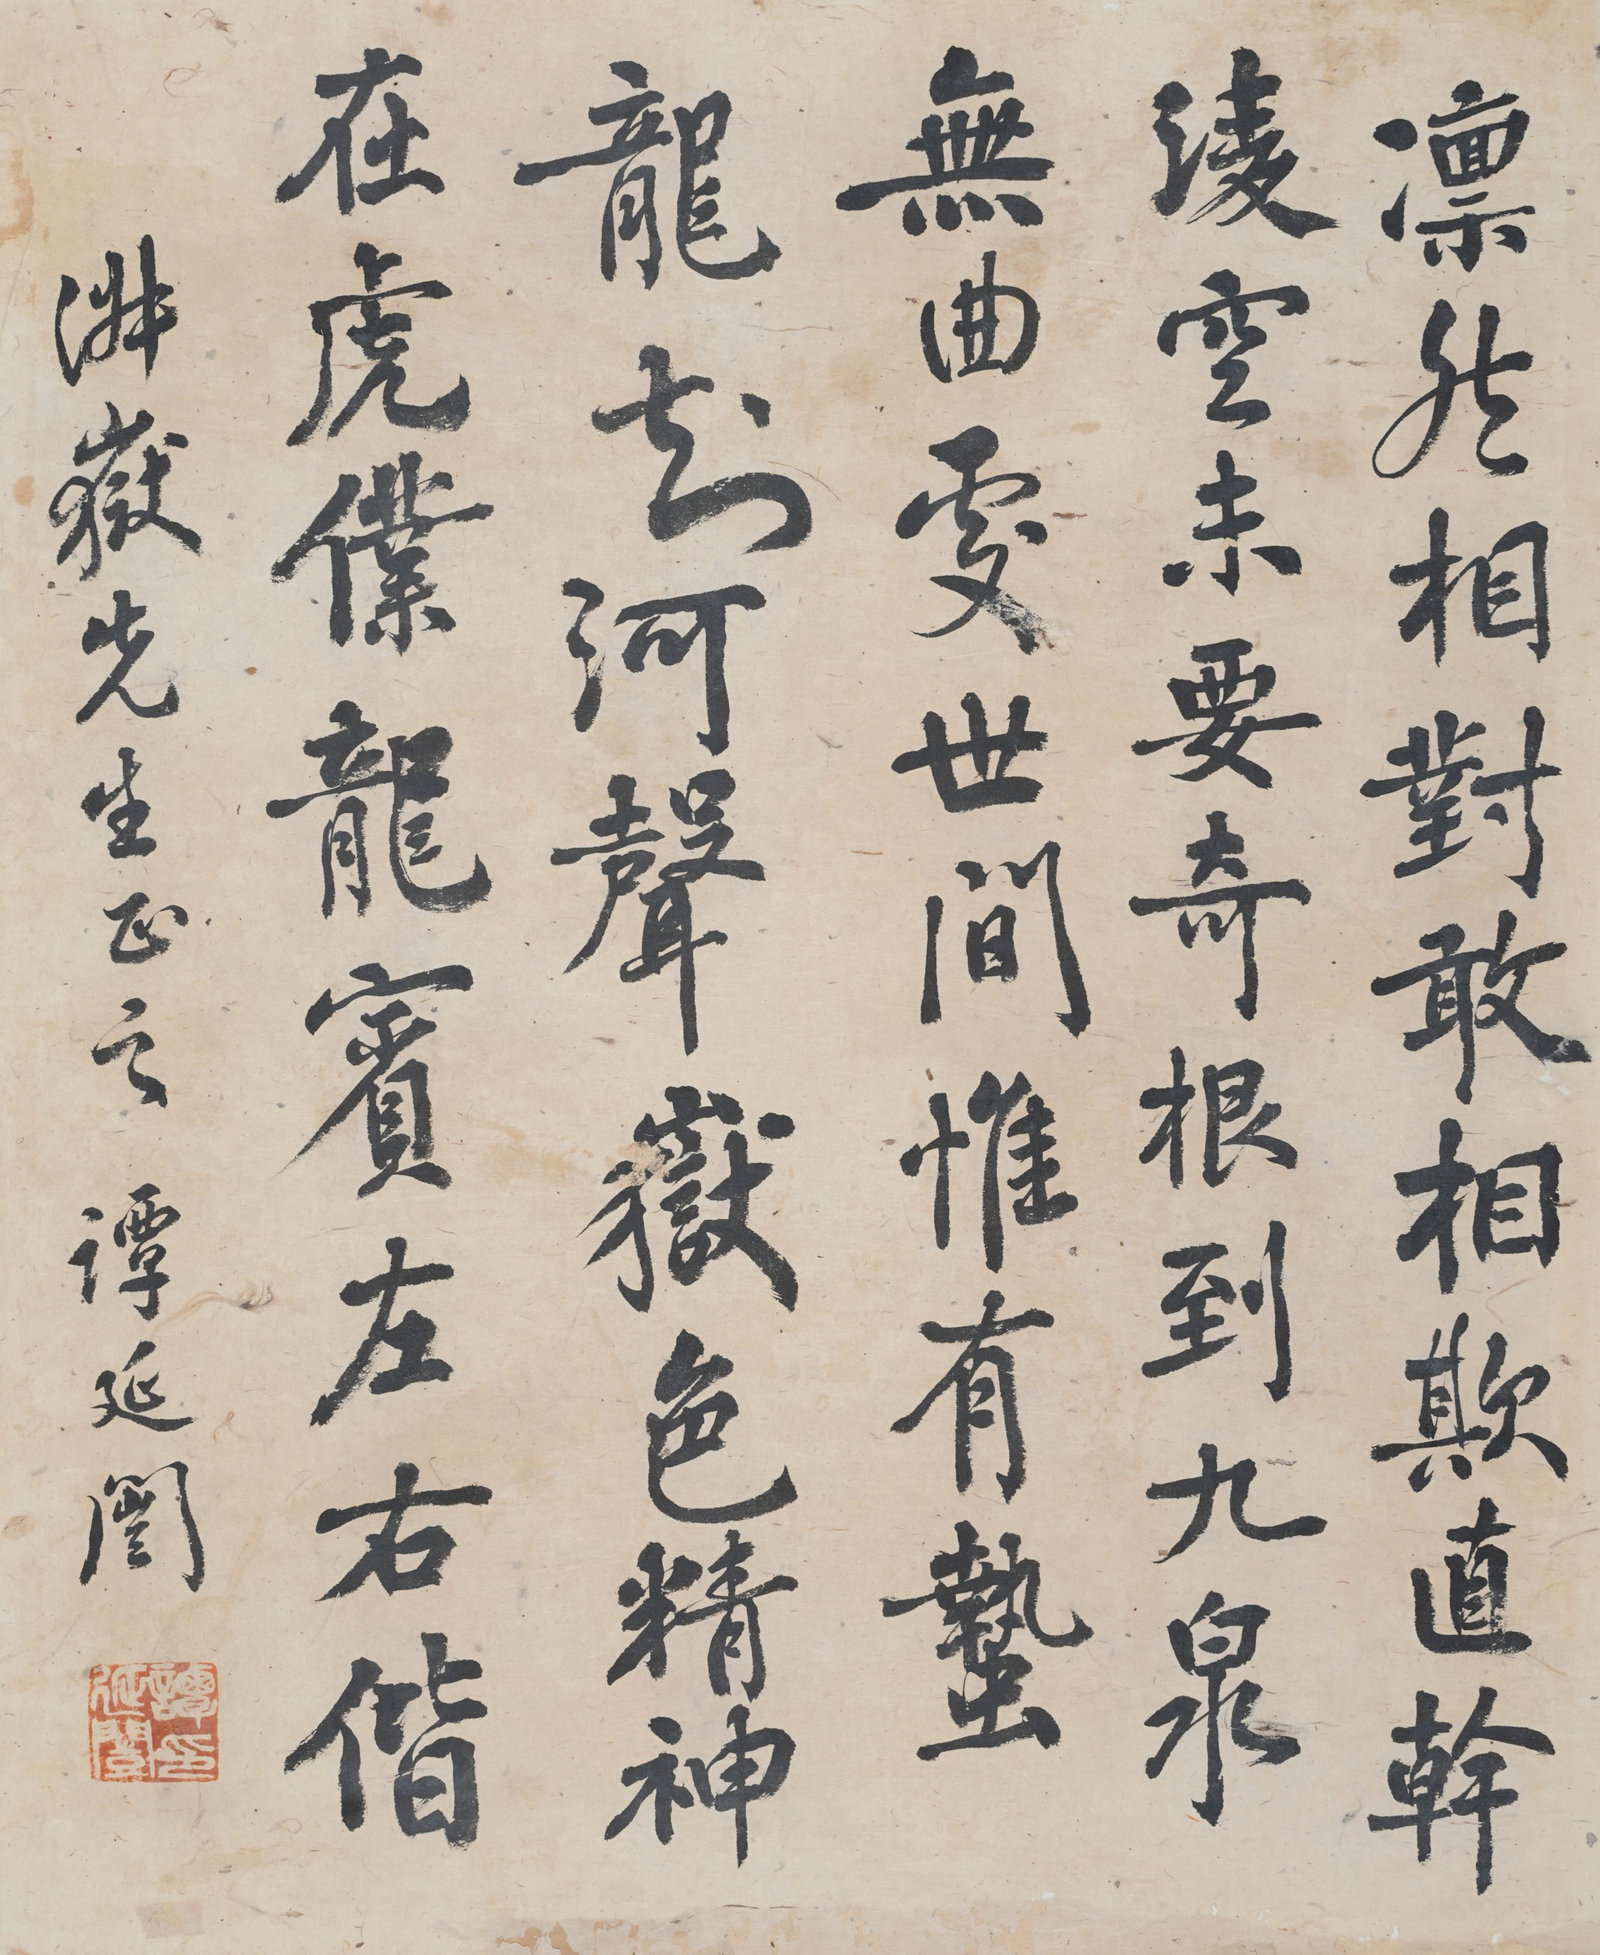 凛然相對敢相欺直幹
淩空未要奇根到九泉
無曲處世間惟有蟄
龍知河聲嶽色精神
在虎僕龍賓左右偕
嶽先生正之 譚延闓
譚延闓印